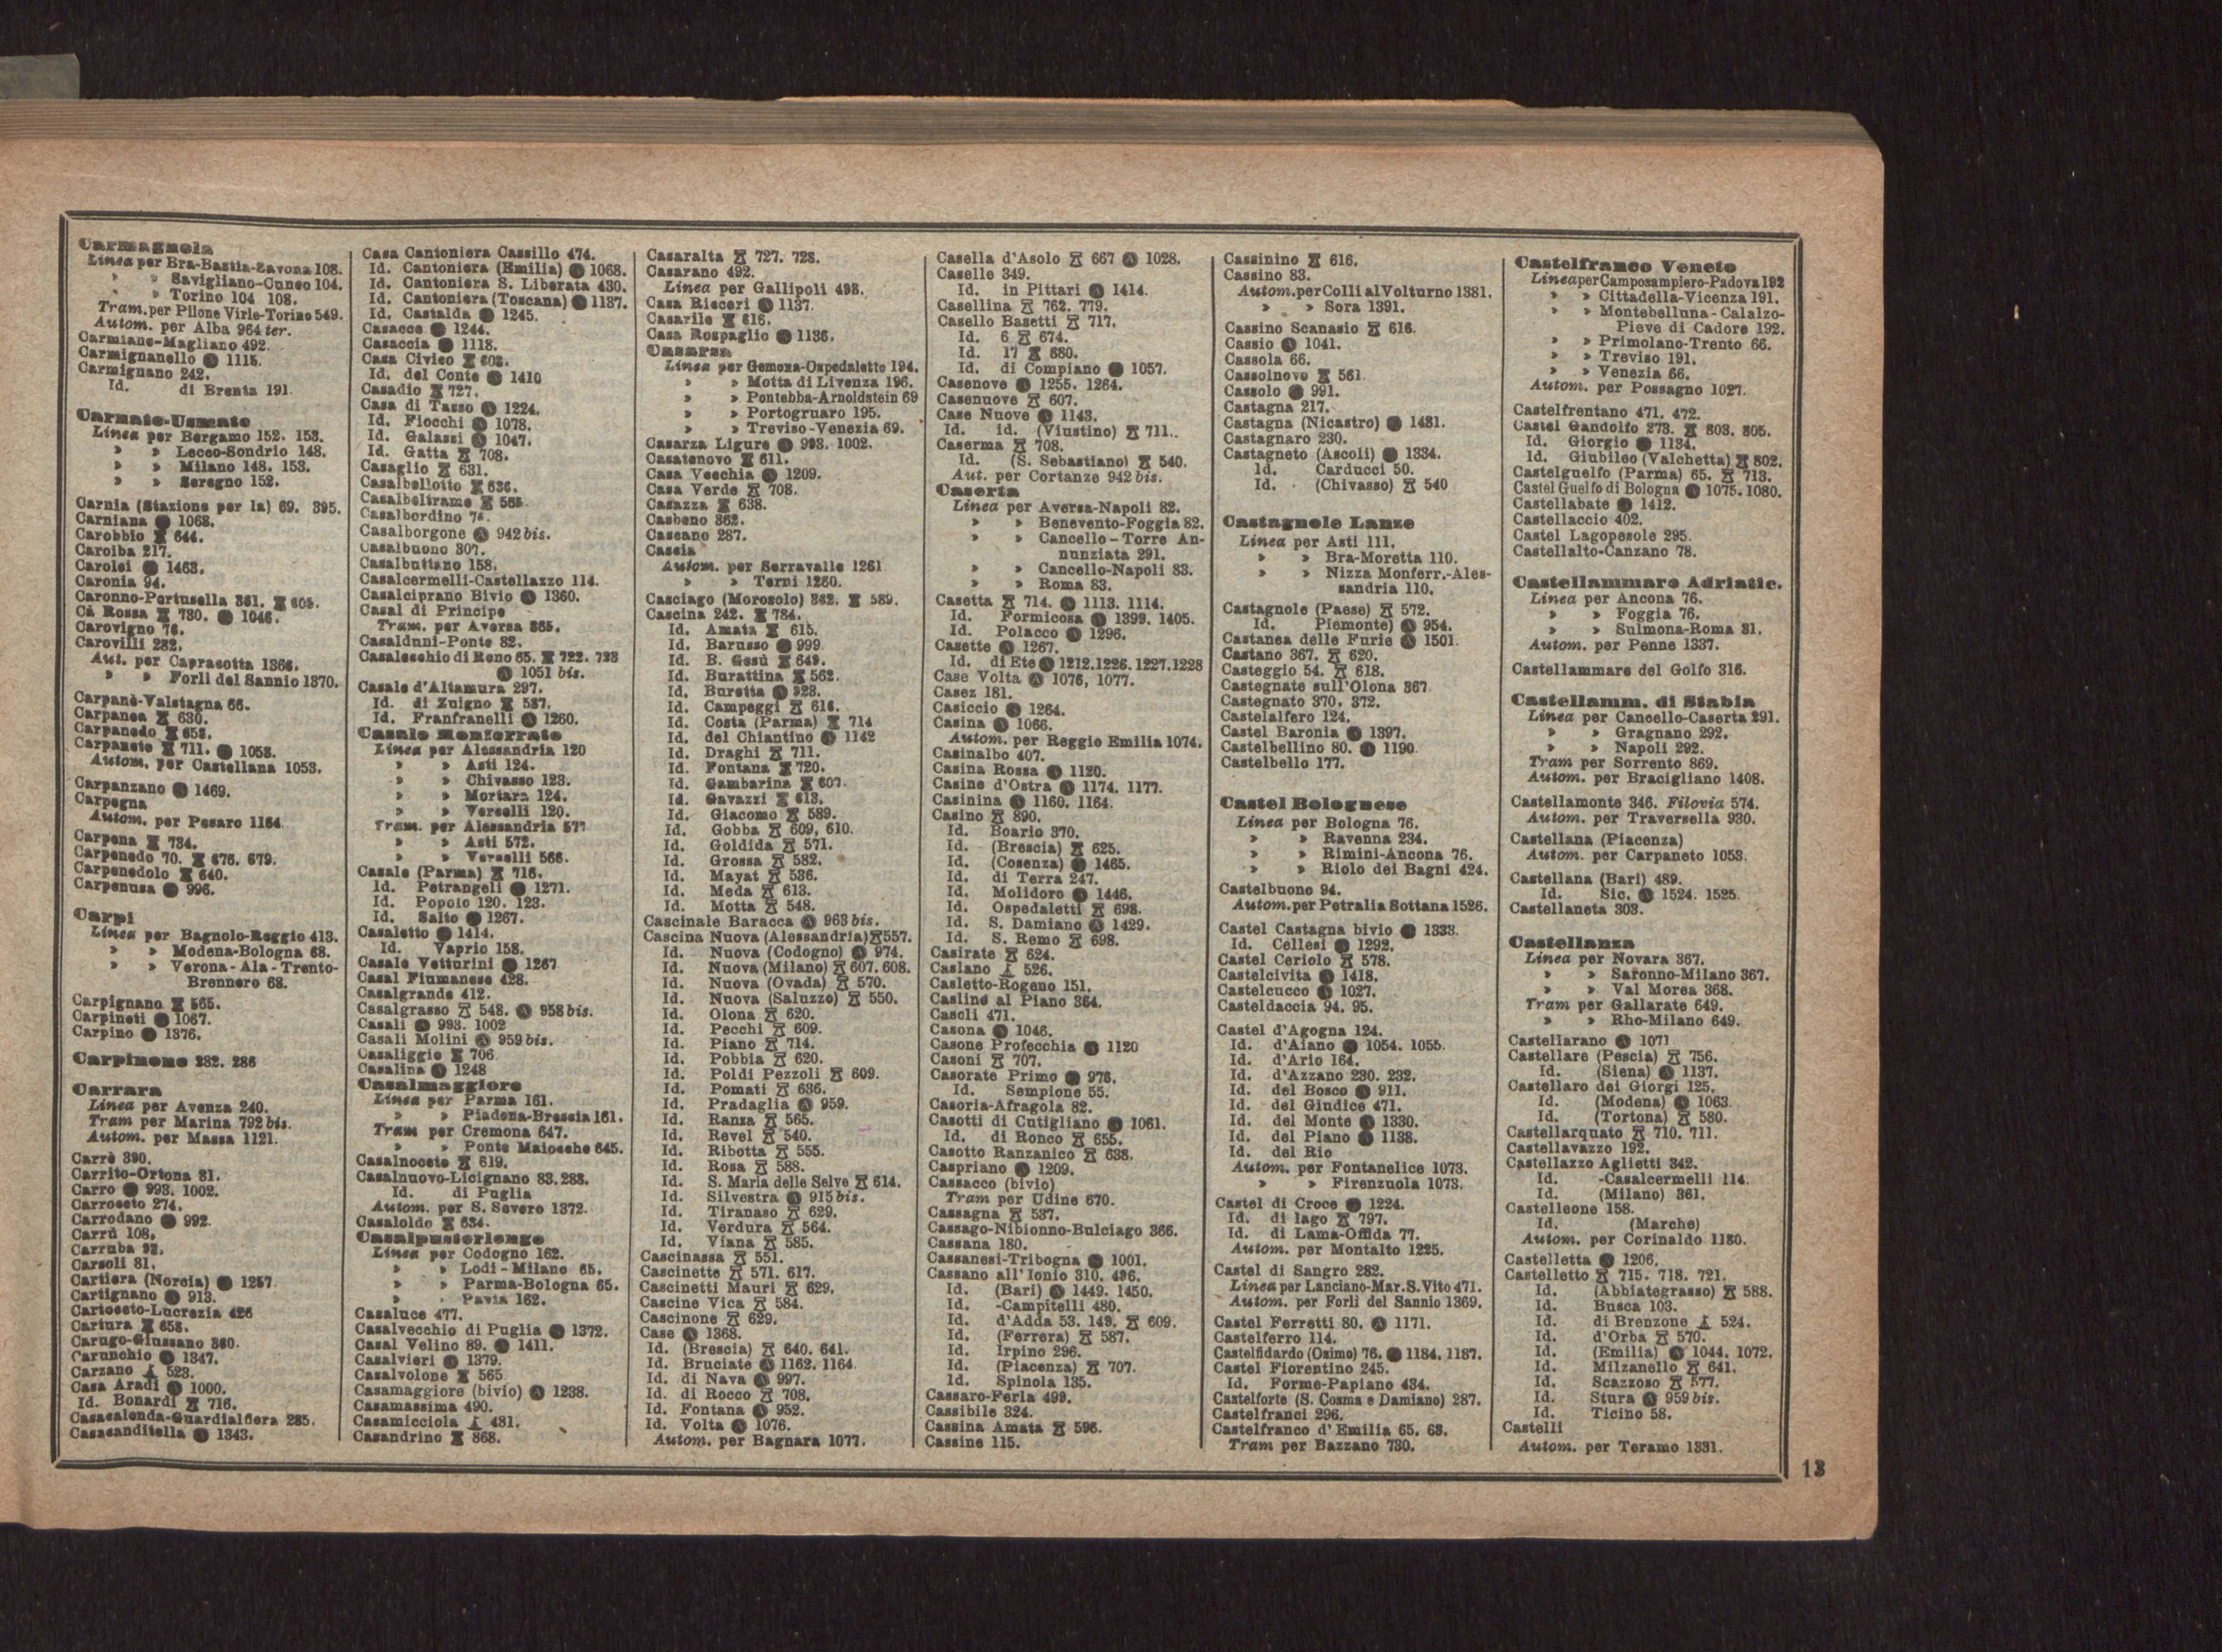 Carmagnola
Linea per Bra-Bastia-Savona 108.
» » Savigliano-Cuneo 104.
» » Torino 104 108.
Tram. per Pilone Virle-Torino 549.
Autom. per Alba 964 ter.
Carmiano-Magliano 492.
Carmignanello Ⓐ 1115.
Carmignano 242.
Id. di Brenta 191.
Carnate-Usmate
Linea per Bergamo 152. 153.
» » Lecco-Sondrio 148.
» » Milano 148. 153.
» » Seregno 152.
Carnia (Stazione per la) 69. 395.
Carniana Ⓐ 1068.
Carobbio 644.
Caroiba 217.
Carolei Ⓐ 1463.
Caronia 94.
Caronno-Pertusella 361. 605.
Cà Rossa 730. Ⓐ 1046.
Carovigno 76.
Carovilli 282.
Aut. per Capracotta 1366.
» » Forlì del Sannio 1370.
Carpanè-Valstagna 66.
Carpanea 630.
Carpanedo 658.
Carpaneto 711. Ⓐ 1053.
Autom. per Castellana 1053.
Carpanzano Ⓐ 1469.
Carpegna
Autom. per Pesaro 1164
Carpena 734.
Carpenedo 70. 676. 679.
Carpenedolo 640.
Carpenusa Ⓐ 996.
Carpi
Linea per Bagnolo-Reggio 413.
» » Modena-Bologna 68.
» » Verona-Ala-Trento-
Brennero 68.
Carpignano 565.
Carpineti Ⓐ 1067.
Carpino Ⓐ 1376.
Carpinone 282. 286
Carrara
Linea per Avenza 240.
Tram per Marina 792 bis.
Autom. per Massa 1121.
Carrè 390.
Carrito-Ortona 81.
Carro Ⓐ 993. 1002.
Carroseto 274.
Carrodano Ⓐ 992.
Carrù 108.
Carruba 92.
Carsoli 81.
Cartiera (Norcia) Ⓐ 1257
Cartignano Ⓐ 913.
Cartoceto-Lucrezia 426
Cartura 658.
Carugo-Giussano 360.
Carunchio Ⓐ 1347.
Carzano 523.
Casa Aradi Ⓐ 1000.
Id. Bonardi 716.
Casacalenda-Guardialfiera 285.
Casacanditella Ⓐ 1343.
Casa Cantoniera Cassillo 474.
Id. Cantoniera (Emilia) Ⓐ 1068.
Id. Cantoniera S. Liberata 430.
Id. Cantoniera (Toscana) Ⓐ 1137.
Id. Castalda Ⓐ 1245.
Casacce Ⓐ 1244.
Casaccia Ⓐ 1118.
Casa Civico 602.
Id. del Conte Ⓐ 1410
Casadio 727.
Casa di Tasso Ⓐ 1224.
Id. Fiocchi Ⓐ 1078.
Id. Galassi Ⓐ 1047.
Id. Gatta 708.
Casaglio 631.
Casalbellotto 636.
Casalbeltrame 565
Casalbordino 76.
Casalborgone Ⓐ 942 bis.
Casalbuono 307.
Casalbuttano 158.
Casalcermelli-Castellazzo 114.
Casalciprano Bivio Ⓐ 1360.
Casal di Principe
Tram. per Aversa 865.
Casalduni-Ponte 82.
Casalecchio di Reno 65. 722. 723
Ⓐ 1051 bis.
Casale d'Altamura 297.
Id. di Zuigno 587.
Id. Franfranelli Ⓐ 1260.
Casale Monferrato
Linea per Alessandria 120
» » Asti 124.
» » Chivasso 123.
» » Mortara 124.
» » Vercelli 120.
Tram. per Alessandria 577
» » Asti 572.
» » Vercelli 566.
Casale (Parma) 716.
Id. Petrangeli Ⓐ 1271.
Id. Popolo 120. 123.
Id. Salto Ⓐ 1267.
Casaletto Ⓐ 1414.
Id. Vaprio 158.
Casale Vetturini Ⓐ 1267
Casal Fiumanese 428.
Casalgrande 412.
Casalgrasso 548. Ⓐ 958 bis.
Casali Ⓐ 993. 1002
Casali Molini Ⓐ 959 bis.
Casaliggio 706
Casalina Ⓐ 1248
Casalmaggiore
Linea per Parma 161.
» » Piadena-Brescia 161.
Tram per Cremona 647.
» » Ponte Maiocche 645.
Casalnoceto 619.
Casalnuovo-Licignano 83. 288.
Id. di Puglia
Autom. per S. Severo 1372.
Casaloldo 634.
Casalpusterlengo
Linea per Codogno 162.
» » Lodi-Milano 65.
» » Parma-Bologna 65.
» » Pavia 162.
Casaluce 477.
Casalvecchio di Puglia Ⓐ 1372.
Casal Velino 89. Ⓐ 1411.
Casalvieri Ⓐ 1379.
Casalvolone 565
Casamaggiore (bivio) Ⓐ 1238.
Casamassima 490.
Casamicciola 481.
Casandrino 868.
Casaralta 727. 728.
Casarano 492.
Linea per Gallipoli 498.
Casa Ricceri Ⓐ 1137.
Casarile 616.
Casa Rospaglio Ⓐ 1136.
Casarsa
Linea per Gemona-Ospedaletto 194.
» » Motta di Livenza 196.
» » Pontebba-Arnoldstein 69
» » Portogruaro 195.
» » Treviso-Venezia 69.
Casarza Ligure Ⓐ 993. 1002.
Casatenovo 611.
Casa Vecchia Ⓐ 1209.
Casa Verde 708.
Casazza 638.
Casbeno 362.
Cascano 287.
Cascia
Autom. per Serravalle 1261
» » Terni 1260.
Casciago (Morosolo) 362. 589.
Cascina 242. 784.
Id. Amata 615.
Id. Barusso Ⓐ 999
Id. B. Gesù 649.
Id. Burattina 562.
Id. Buretta Ⓐ 928.
Id. Campeggi 616.
Id. Costa (Parma) 714
Id. del Chiantino Ⓐ 1142
Id. Draghi 711.
Id. Fontana 720.
Id. Gambarina 607
Id. Gavazzi 613.
Id. Giacomo 589.
Id. Gobba 609, 610.
Id. Goldida 571.
Id. Grossa 582.
Id. Mayat 536.
Id. Meda 613.
Id. Motta 548.
Cascinale Baracca Ⓐ 963 bis.
Cascina Nuova (Alessandria) 557.
Id. Nuova (Codogno) Ⓐ 974.
Id. Nuova (Milano) 607. 608.
Id. Nuova (Ovada) 570.
Id. Nuova (Saluzzo) 550.
Id. Olona 620.
Id. Pecchi 609.
Id. Piano 714.
Id. Pobbia 620.
Id. Poldi Pezzoli 609.
Id. Pomati 636.
Id. Pradaglia Ⓐ 959.
Id. Ranza 565.
Id. Revel 540.
Id. Ribotta 555.
Id. Rosa 588.
Id. S. Maria delle Selve 614.
Id. Silvestra Ⓐ 915 bis.
Id. Tiranaso 629.
Id. Verdura 564.
Id. Viana 585.
Cascinassa 551.
Cascinette 571. 617.
Cascinetti Mauri 629.
Cascine Vica 584.
Cascinone 629.
Case Ⓐ 1368.
Id. (Brescia) 640. 641.
Id. Bruciate Ⓐ 1162. 1164
Id. di Nava Ⓐ 997.
Id. di Rocco 708.
Id. Fontana Ⓐ 952.
Id. Volta Ⓐ 1076.
Autom. per Bagnara 1077.
Casella d'Asolo 667 Ⓐ 1028.
Caselle 349.
Id. in Pittari Ⓐ 1414.
Casellina 762. 779.
Casello Basetti 717.
Id. 6 674.
Id. 17 680.
Id. di Compiano Ⓐ 1057.
Casenove Ⓐ 1255. 1264.
Casenuove 607.
Case Nuove Ⓐ 1143.
Id. id. (Viustino) 711.
Caserma 708.
Id. (S. Sebastiano) 540.
Aut. per Cortanze 942 bis.
Caserta
Linea per Aversa-Napoli 82.
» » Benevento-Foggia 82.
» » Cancello-Torre An-
nunziata 291.
» » Cancello-Napoli 83.
» » Roma 83.
Casetta 714. Ⓐ 1113. 1114.
Id. Formicosa Ⓐ 1399. 1405.
Id. Polacco Ⓐ 1296.
Casette Ⓐ 1267.
Id. di Ete Ⓐ 1212. 1226. 1227. 1228
Case Volta Ⓐ 1076, 1077.
Casez 181.
Casiccio Ⓐ 1264.
Casina Ⓐ 1066.
Autom. per Reggio Emilia 1074.
Casinalbo 407.
Casina Rossa Ⓐ 1120.
Casine d'Ostra Ⓐ 1174. 1177.
Casinina Ⓐ 1160. 1164.
Casino 890.
Id. Boario 370.
Id. (Brescia) 625.
Id. (Cosenza) Ⓐ 1465.
Id. di Terra 247.
Id. Molidoro Ⓐ 1446.
Id. Ospedaletti 698.
Id. S. Damiano Ⓐ 1429.
Id. S. Remo 698.
Casirate 624.
Caslano 526.
Casletto-Rogeno 151.
Caslino al Piano 364.
Casoli 471.
Casona Ⓐ 1046.
Casone Profecchia Ⓐ 1120
Casoni 707.
Casorate Primo Ⓐ 976.
Id. Sempione 55.
Casoria-Afragola 82.
Casotti di Cutigliano Ⓐ 1061.
Id. di Ronco 655.
Casotto Ranzanico 638.
Caspriano Ⓐ 1209.
Cassacco (bivio)
Tram per Udine 670.
Cassagna 537.
Cassago-Nibionno-Bulciago 366.
Cassana 180.
Cassanesi-Tribogna Ⓐ 1001.
Cassano all'Ionio 310. 496.
Id. (Bari) Ⓐ 1449. 1450.
Id. -Campitelli 480.
Id. d'Adda 53. 149. 609.
Id. (Ferrera) 587.
Id. Irpino 296.
Id. (Piacenza) 707.
Id. Spinola 135.
Cassaro-Ferla 499.
Cassibile 324.
Cassina Amata 596.
Cassine 115.
Cassinino 616.
Cassino 83.
Autom. per Colli al Volturno 1381.
» » Sora 1391.
Cassino Scanasio 616.
Cassio Ⓐ 1041.
Cassola 66.
Cassolnovo 561.
Cassolo Ⓐ 991.
Castagna 217.
Castagna (Nicastro) Ⓐ 1481.
Castagnaro 230.
Castagneto (Ascoli) Ⓐ 1334.
Id. Carducci 50.
Id. (Chivasso) 540
Castagnole Lanze
Linea per Asti 111.
» » Bra-Moretta 110.
» » Nizza Monferr.-Ales-
sandria 110.
Castagnole (Paese) 572.
Id. Piemonte) Ⓐ 954.
Castanea delle Furie Ⓐ 1501.
Castano 367. 620.
Casteggio 54. 618.
Castegnate sull'Olona 367
Castegnato 370. 372.
Castelalfero 124.
Castel Baronia Ⓐ 1397.
Castelbellino 80. Ⓐ 1190
Castelbello 177.
Castel Bolognese
Linea per Bologna 76.
» » Ravenna 234.
» » Rimini-Ancona 76.
» » Riolo dei Bagni 424.
Castelbuono 94.
Autom. per Petralia Sottana 1526.
Castel Castagna bivio Ⓐ 1333.
Id. Cellesi Ⓐ 1292.
Castel Ceriolo 578.
Castelcivita Ⓐ 1418.
Castelcucco Ⓐ 1027.
Casteldaccia 94. 95.
Castel d'Agogna 124.
Id. d'Aiano Ⓐ 1054. 1055.
Id. d'Ario 164.
Id. d'Azzano 230. 232.
Id. del Bosco Ⓐ 911.
Id. del Giudice 471.
Id. del Monte Ⓐ 1330.
Id. del Piano Ⓐ 1138.
Id. del Rio
Autom. per Fontanelice 1073.
» » Firenzuola 1073.
Castel di Croce Ⓐ 1224.
Id. di lago 797.
Id. di Lama-Offida 77.
Autom. per Montalto 1225.
Castel di Sangro 282.
Linea per Lanciano-Mar. S. Vito 471.
Autom. per Forlì del Sannio 1369.
Castel Ferretti 80. Ⓐ 1171.
Castelferro 114.
Castelfidardo (Osimo) 76. Ⓐ 1184. 1187.
Castel Fiorentino 245.
Id. Forme-Papiano 434.
Castelforte (S. Cosma e Damiano) 287.
Castelfranci 296.
Castelfranco d'Emilia 65. 68.
Tram per Bazzano 730.
Castelfranco Veneto
Linea per Camposampiero-Padova 192
» » Cittadella-Vicenza 191.
» » Montebelluna-Calalzo-
Pieve di Cadore 192.
» » Primolano-Trento 66.
» » Treviso 191.
» » Venezia 66.
Autom. per Possagno 1027.
Castelfrentano 471. 472.
Castel Gandolfo 273. 803. 805.
Id. Giorgio Ⓐ 1134.
Id. Giubileo (Valchetta) 802.
Castelguelfo (Parma) 65. 713.
Castel Guelfo di Bologna Ⓐ 1075. 1080.
Castellabate Ⓐ 1412.
Castellaccio 402.
Castel Lagopesole 295.
Castellalto-Canzano 78.
Castellammare Adriatic.
Linea per Ancona 76.
» » Foggia 76.
» » Sulmona-Roma 81.
Autom. per Penne 1337.
Castellammare del Golfo 316.
Castellamm. di Stabia
Linea per Cancello-Caserta 291.
» » Gragnano 292.
» » Napoli 292.
Tram per Sorrento 869.
Autom. per Bracigliano 1408.
Castellamonte 346. Filovia 574.
Autom. per Traversella 930.
Castellana (Piacenza)
Autom. per Carpaneto 1053.
Castellana (Bari) 489.
Id. Sic. Ⓐ 1524. 1525
Castellaneta 303.
Castellanza
Linea per Novara 367.
» » Saronno-Milano 367.
» » Val Morea 368.
Tram per Gallarate 649.
» » Rho-Milano 649.
Castellarano Ⓐ 1071
Castellare (Pescia) 756.
Id. (Siena) Ⓐ 1137.
Castellaro dei Giorgi 125.
Id. (Modena) Ⓐ 1063
Id. (Tortona) 580.
Castellarquato 710. 711.
Castellavazzo 192.
Castellazzo Aglietti 342.
Id. -Casalcermelli 114.
Id. (Milano) 361.
Castelleone 158.
Id. (Marche)
Autom. per Corinaldo 1180.
Castelletta Ⓐ 1206.
Castelletto 715. 718. 721.
Id. (Abbiategrasso) 588.
Id. Busca 103.
Id. di Brenzone 524.
Id. d'Orba 570.
Id. (Emilia) Ⓐ 1044. 1072.
Id. Milzanello 641.
Id. Scazzoso 577.
Id. Stura Ⓐ 959 bis.
Id. Ticino 58.
Castelli
Autom. per Teramo 1331.
13